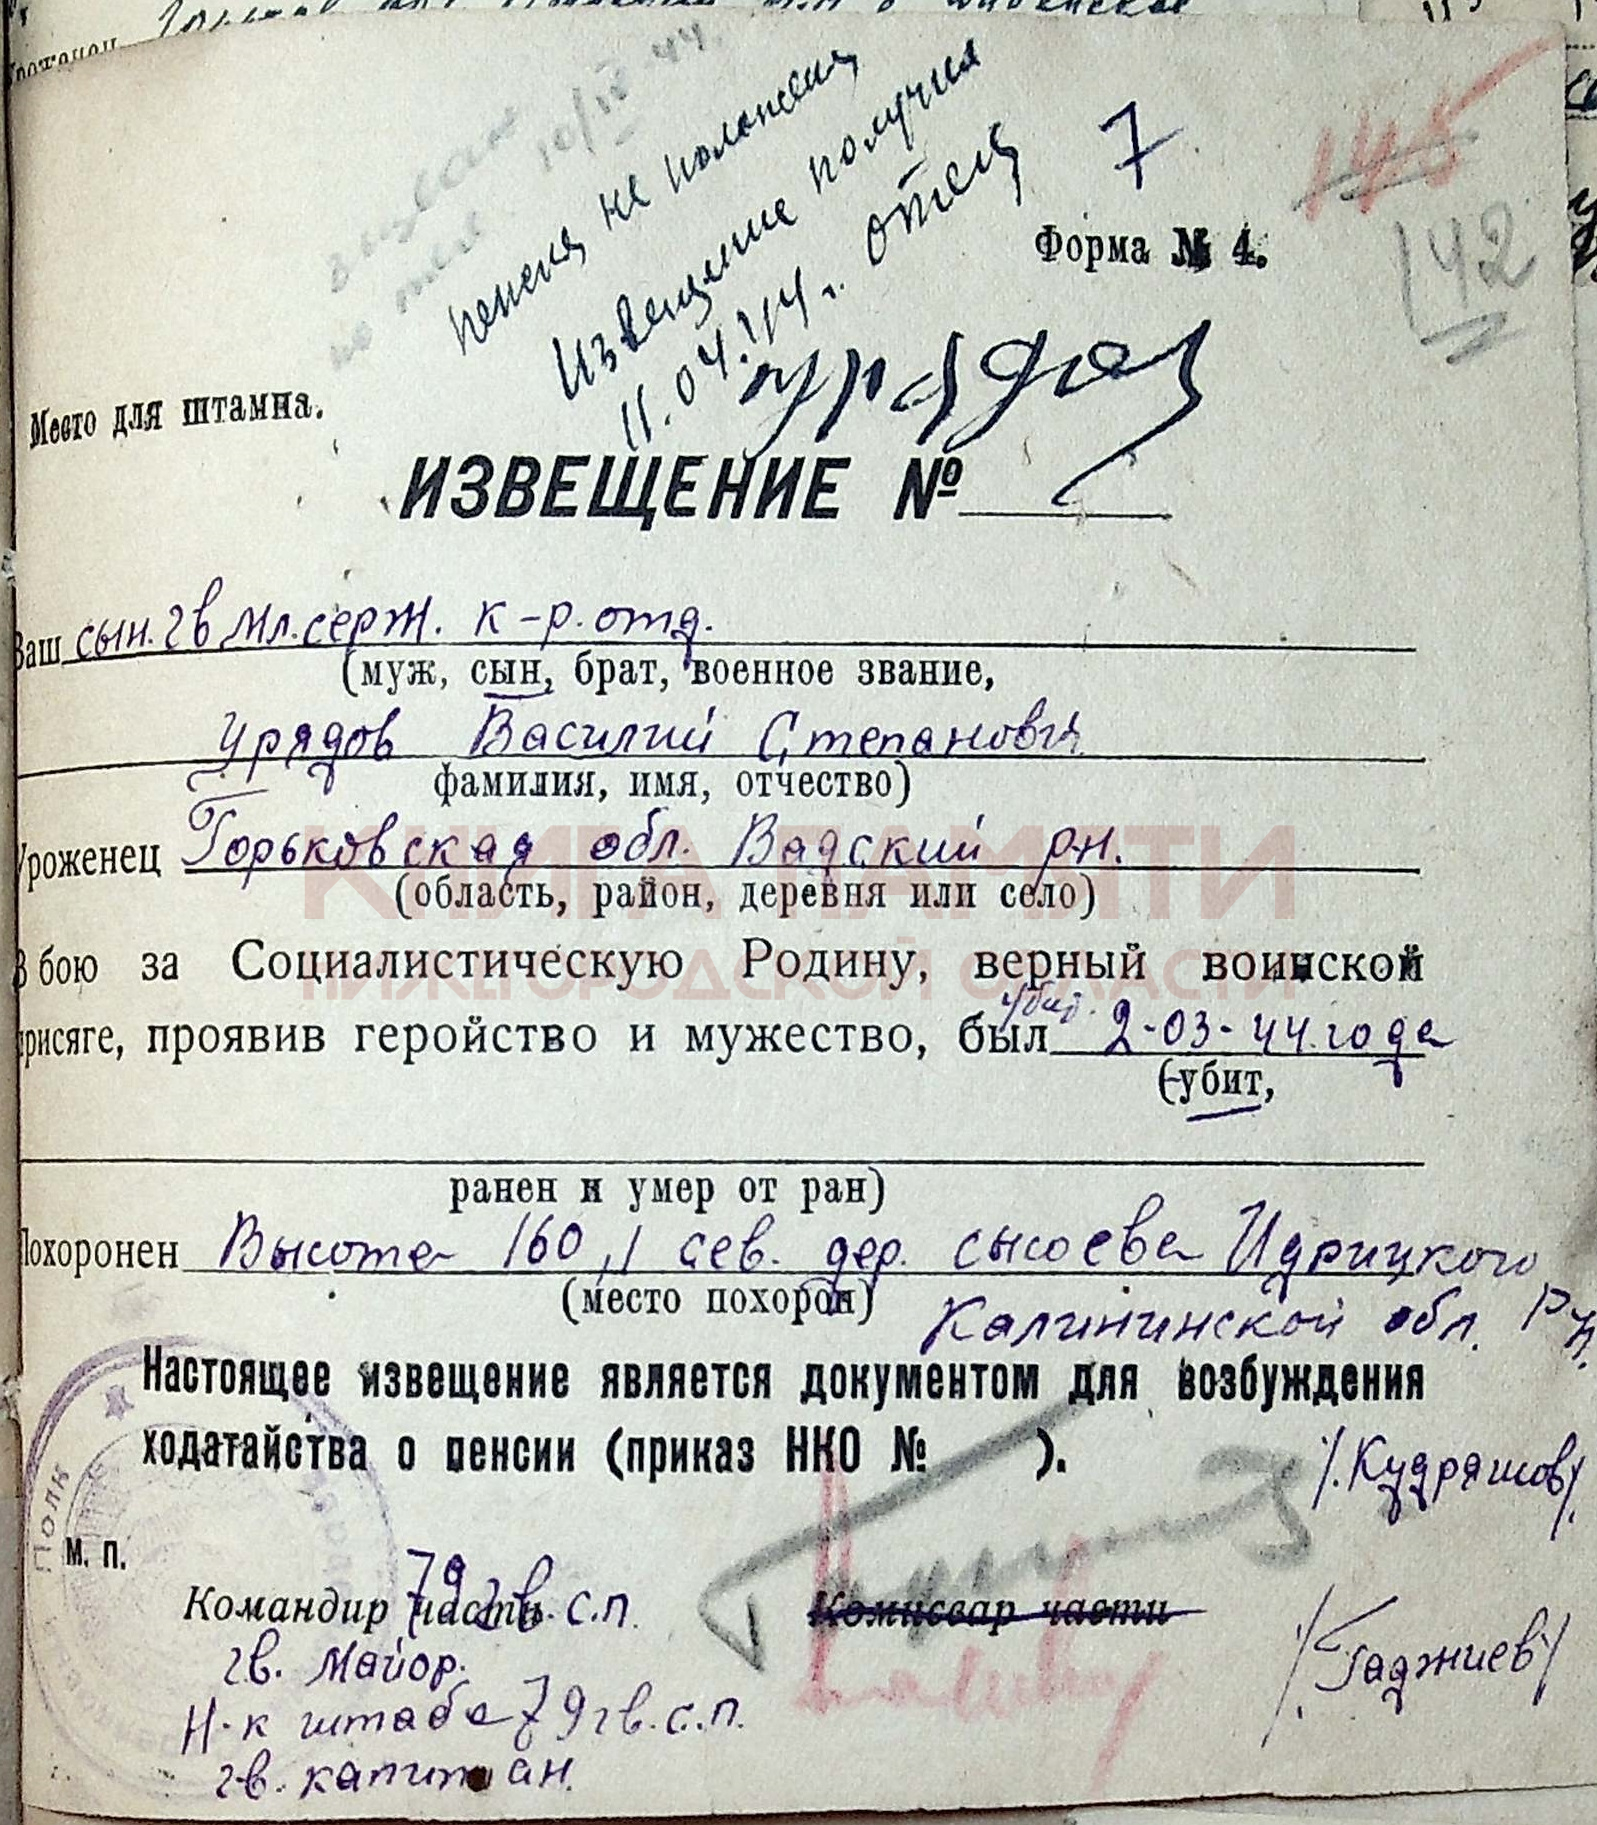 10/IV 44.
пенсия не положена
Извещение получил
11.04.44 г. отец
7
145
142
Форма № 4.
Урядов
Место для штампа.
ИЗВЕЩЕНИЕ №
Ваш сын. гв мл. серж. к-р. отд.
(муж, сын, брат, военное звание,
Урядов Василий Степанович
фамилия, имя, отчество)
Уроженец Горьковская обл. Вадский рн.
(область, район, деревня или село)
КНИГА ПАМЯТИ
НИЖЕГОРОДСКОЙ ОБЛАСТИ
В бою за Социалистическую Родину, верный воинской
присяге, проявив геройство и мужество, был убит. 2-03-44. года
(убит,
ранен и умер от ран)
Похоронен Высота 160,1 сев. дер. сысоева Идрицкого
(место похорон) Калининской обл. Рн.
Настоящее извещение является документом для возбуждения
ходатайства о пенсии (приказ НКО № ).
/.Кудряшов/.
ПОЛК
М. П.
Командир части 79 гв. с.п. Комиссар части
гв. Майор.
/.Гаджиев/
Н-к штаба 79 гв. с.п.
гв. капитан.